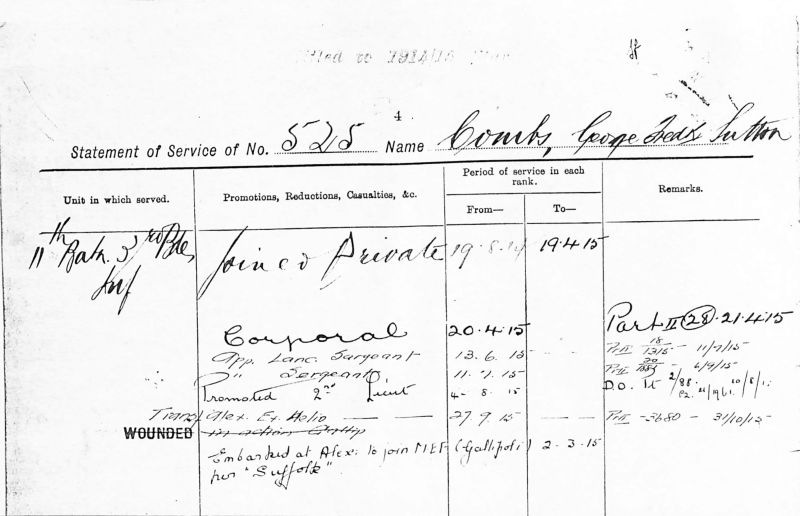 to 1914/15
4
Statement of Service of No. 525 Name Combs, George Fredk Sutton
Unit in which served.
Promotions, Reductions, Casualties, &c.
Period of service in each rank.
From—
To—
Remarks.
11th Batn. 3rd Bde, Inf
Joined Private 19.8.14 19.4.15
Corporal 20.4.15 Part II (28) 21.4.15
App. Lanc. Sargeant 13.6.15 Pt II 18 - 11/7/15
" Sergeant 11.7.15 Pt II 20 - 6/9/15
Promoted 2nd Lieut 4-8.15 D.O.
Trans. Alex. Ex. Helio 27.9.15 Pt II - 3680 - 31/10/15
WOUNDED in action
Embarked at Alex: to join MEF (Gallipoli) 2.3.15
per "Suffolk"